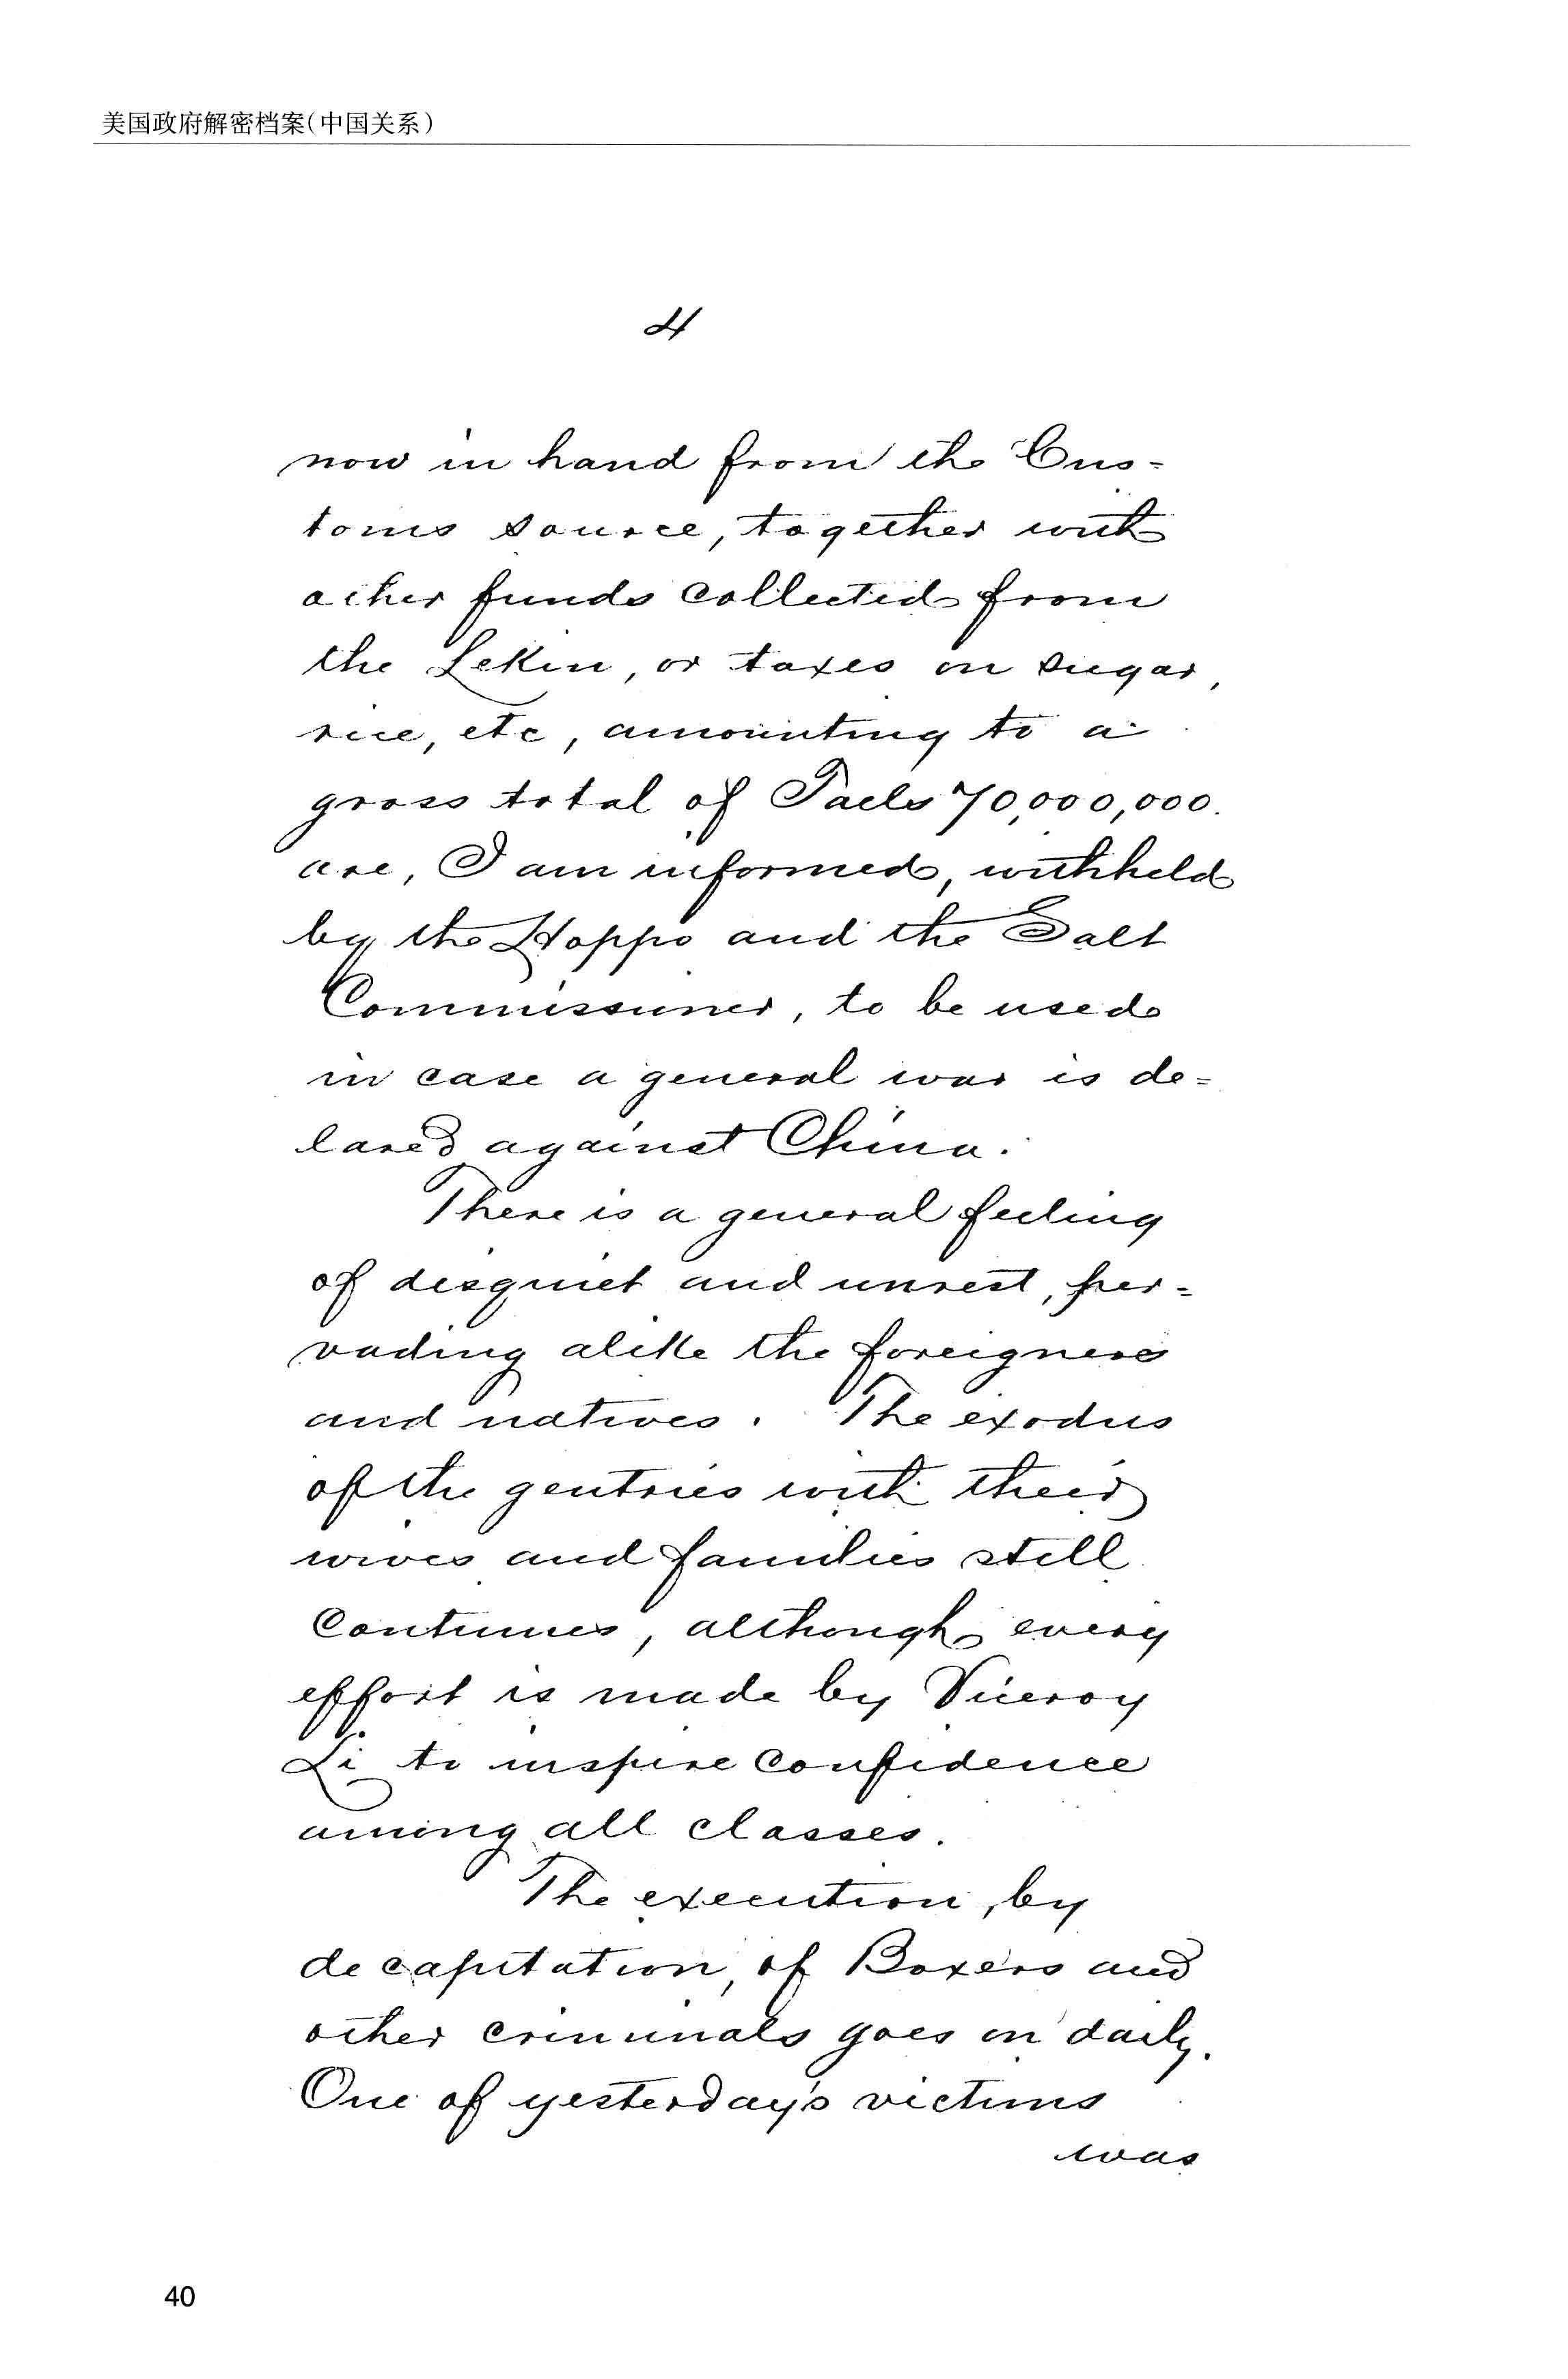 美国政府解密档案(中国关系)
4
now in hand from the Cus-
toms source, together with
other funds collected from
the Lekin, or taxes on sugar,
rice, etc, amounting to a
gross total of Taels 70,000,000.
are, I am informed, withheld
by the Hoppo and the Salt
Commissioner, to be used
in case a general war is de-
lared against China.
There is a general feeling
of disquiet and unrest, per-
vading alike the foreigners
and natives. The exodus
of the gentries with their
wives and families still
continues, although every
effort is made by Viceroy
Li to inspire confidence
among all classes.
The execution, by
decapitation, of Boxers and
other criminals goes on daily.
One of yesterday's victims
was
40